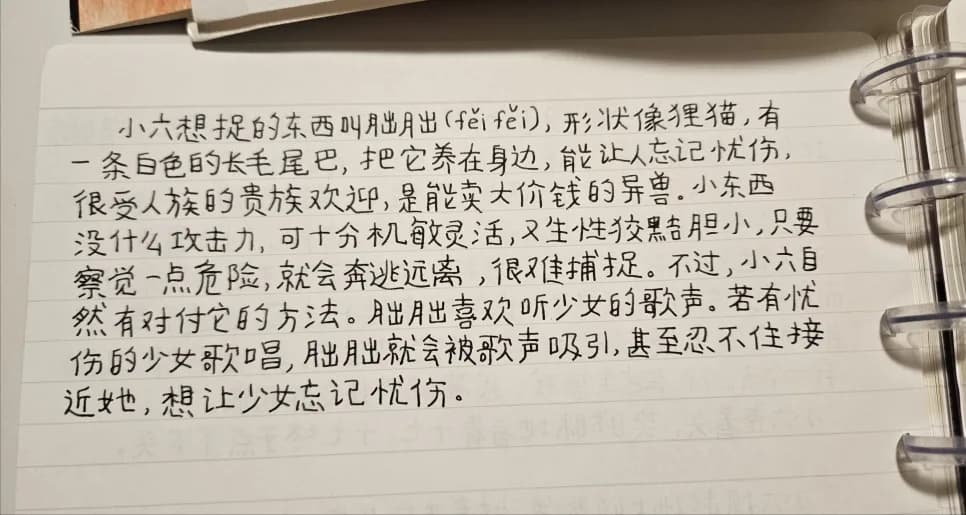 小六想捉的东西叫朏朏(fěi fěi)，形状像狸猫，有
一条白色的长毛尾巴，把它养在身边，能让人忘记忧伤，
很受人族的贵族欢迎，是能卖大价钱的异兽。小东西
没什么攻击力，可十分机敏灵活，又生性狡黠胆小，只要
察觉一点危险，就会奔逃远离，很难捕捉。不过，小六自
然有对付它的方法。朏朏喜欢听少女的歌声。若有忧
伤的少女歌唱，朏朏就会被歌声吸引，甚至忍不住接
近她，想让少女忘记忧伤。